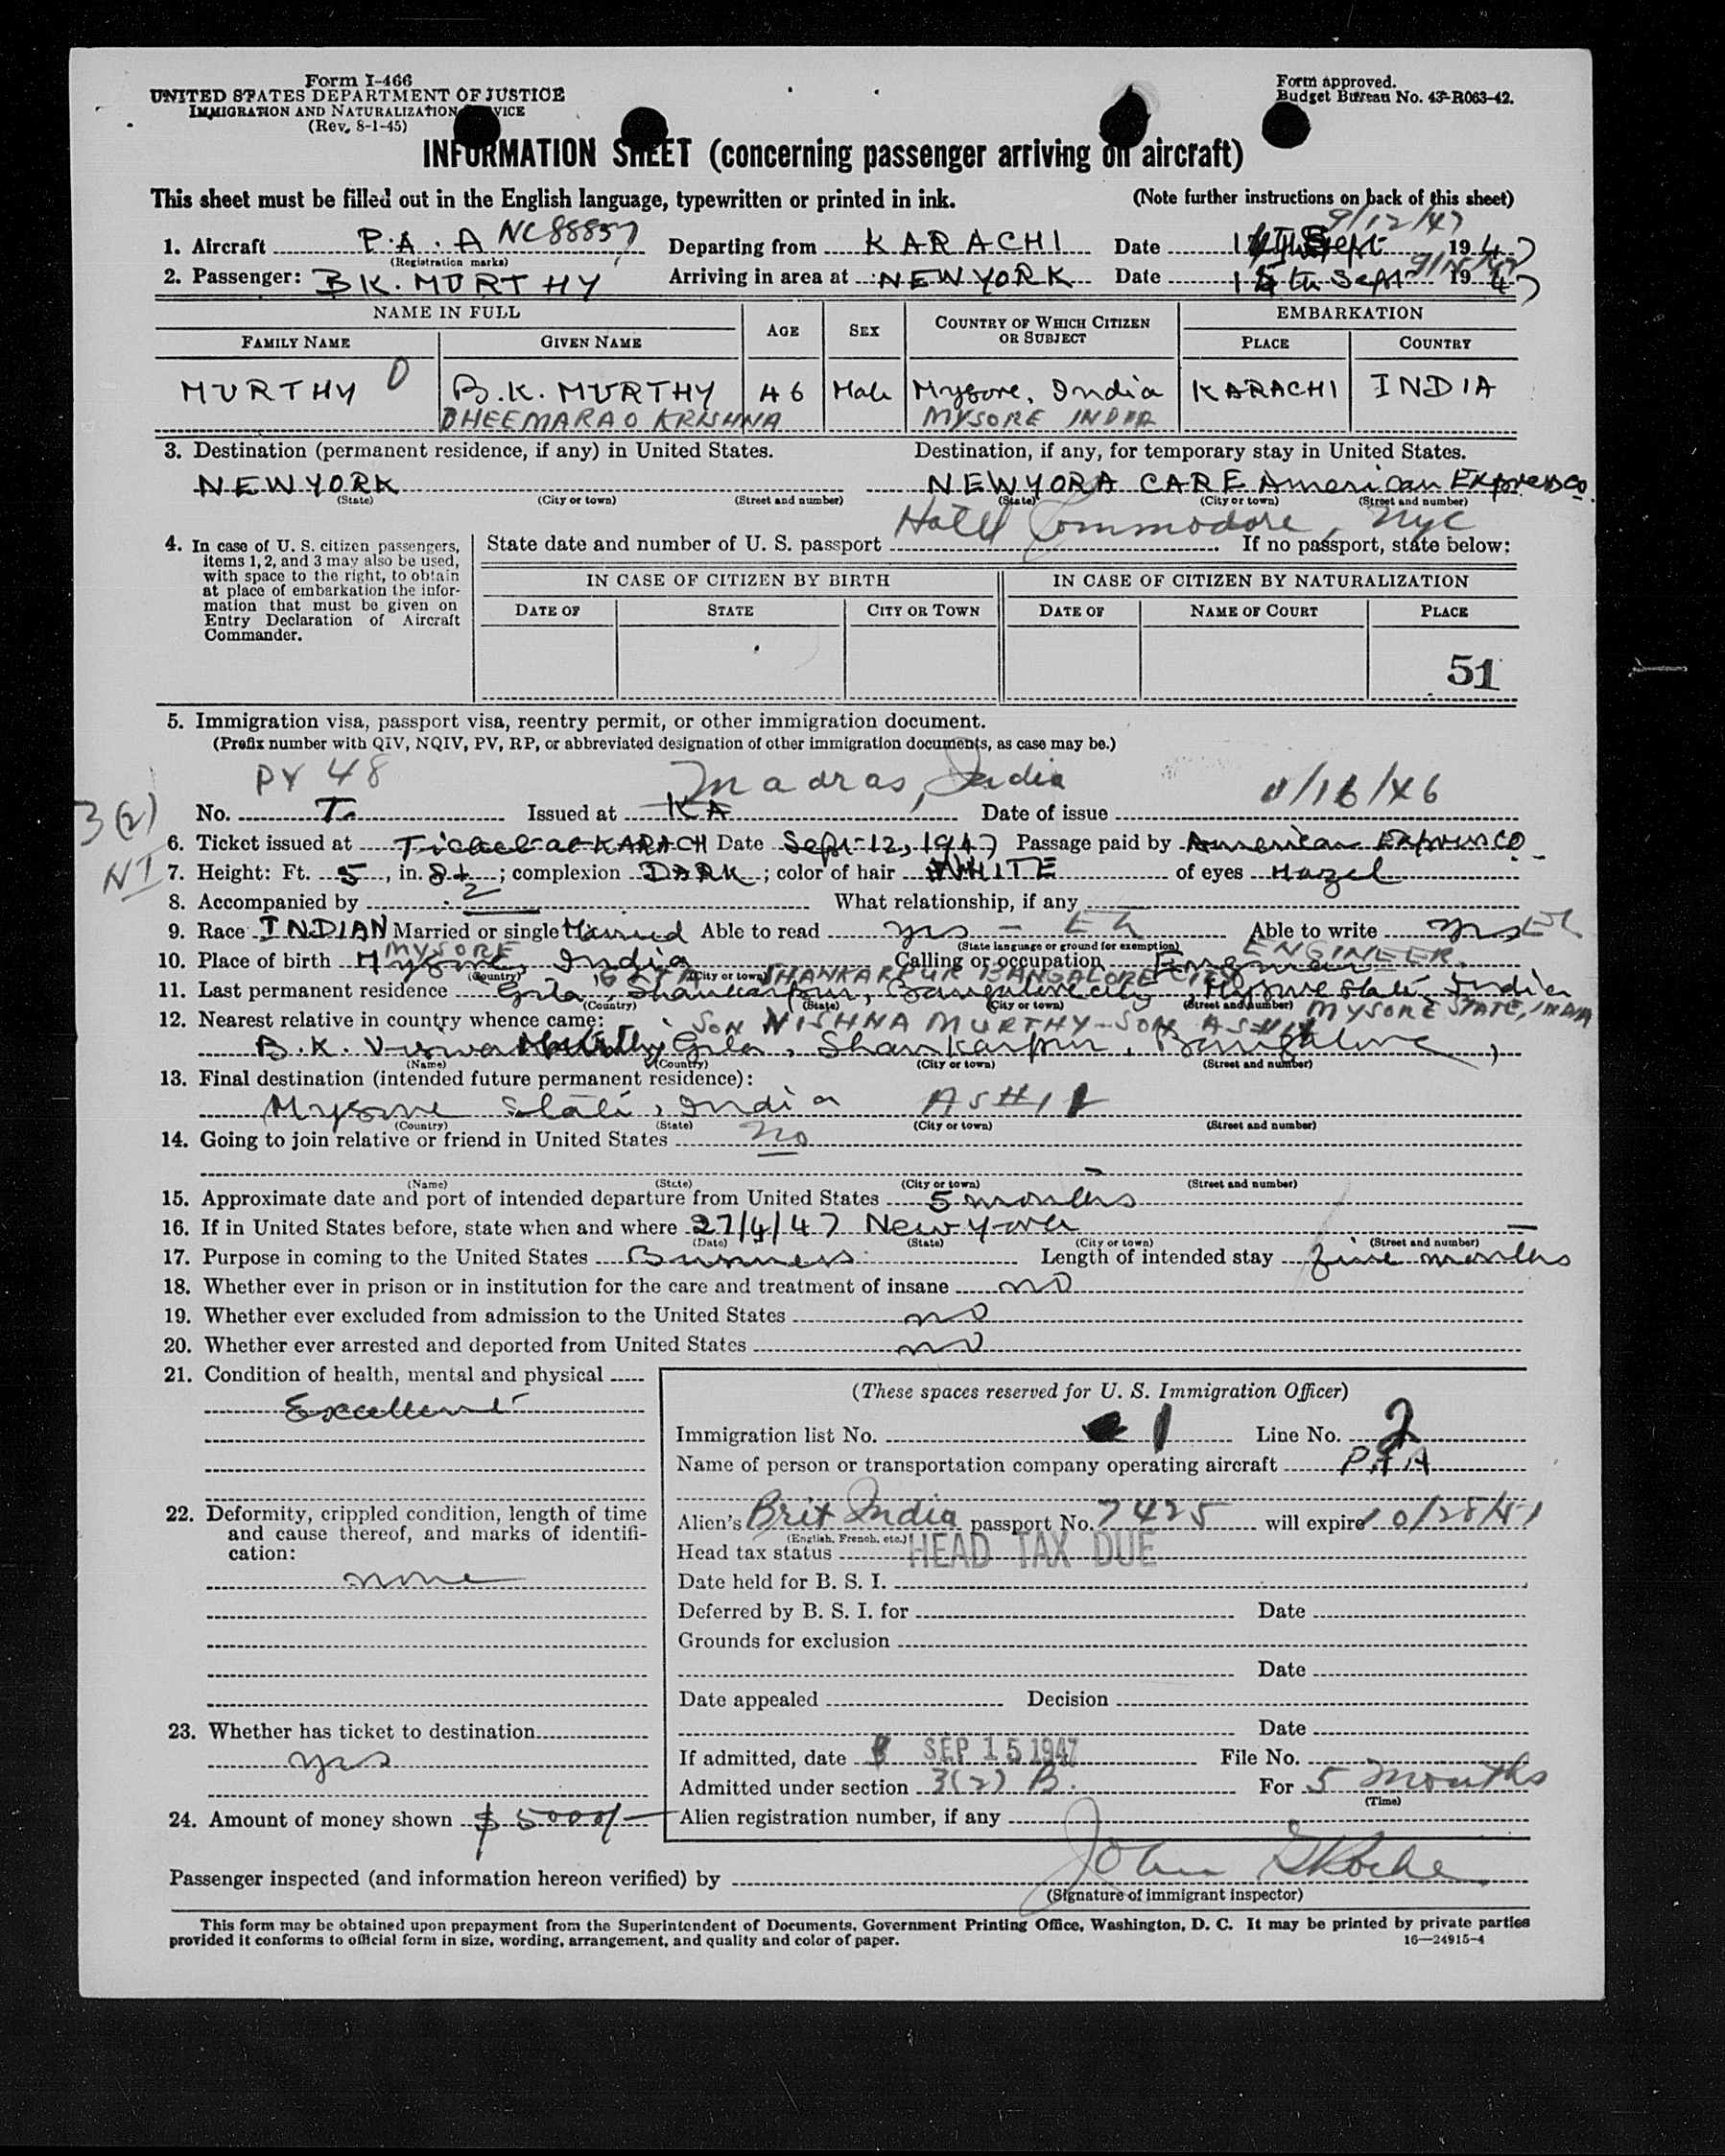 Form I-466
UNITED STATES DEPARTMENT OF JUSTICE
IMMIGRATION AND NATURALIZATION SERVICE
(Rev. 8-1-45)
Form approved.
Budget Bureau No. 43-R063-42.
INFORMATION SHEET (concerning passenger arriving on aircraft)
This sheet must be filled out in the English language, typewritten or printed in ink. (Note further instructions on back of this sheet)
9/12/47
1. Aircraft P.A.A NC88857 Departing from KARACHI Date Sept 1947
(Registration marks)
2. Passenger: B K. MURTHY Arriving in area at NEW YORK Date 15th Sept 1947
NAME IN FULL AGE SEX COUNTRY OF WHICH CITIZEN OR SUBJECT EMBARKATION
FAMILY NAME GIVEN NAME PLACE COUNTRY
MURTHY B.K. MURTHY 46 Male Mysore, India KARACHI INDIA
DHEEMARAO KRISHNA MYSORE INDIA
3. Destination (permanent residence, if any) in United States. Destination, if any, for temporary stay in United States.
NEWYORK NEWYORK CARE American Express Co.
(State) (City or town) (Street and number) (State) (City or town) (Street and number)
Hotel Commodore, NYC
4. In case of U. S. citizen passengers, items 1, 2, and 3 may also be used, with space to the right, to obtain at place of embarkation the information that must be given on Entry Declaration of Aircraft Commander.
State date and number of U. S. passport If no passport, state below:
IN CASE OF CITIZEN BY BIRTH IN CASE OF CITIZEN BY NATURALIZATION
DATE OF STATE CITY OR TOWN DATE OF NAME OF COURT PLACE
51
5. Immigration visa, passport visa, reentry permit, or other immigration document.
(Prefix number with QIV, NQIV, PV, RP, or abbreviated designation of other immigration documents, as case may be.)
PV 48 Madras, India 11/16/46
3(2)
No. T. Issued at KA Date of issue
6. Ticket issued at Ticket at KARACH Date Sept 12, 1947 Passage paid by American Express Co
NI
7. Height: Ft. 5, in. 8 1/2; complexion DARK; color of hair WHITE of eyes Hazel
8. Accompanied by What relationship, if any
9. Race INDIAN Married or single Married Able to read yes - Eh Able to write yes Eh
(State language or ground for exemption)
MYSORE ENGINEER
10. Place of birth Mysore, India Calling or occupation Engineer
(Country) (City or town)
GITA SHANKARPUR BANGALORE CITY
11. Last permanent residence Gita, Shankarpur, Bangalore city, Mysore State, India
(Country) (State) (City or town) (Street and number)
MYSORE STATE, INDIA
12. Nearest relative in country whence came: SON MURTHY-SON AS #11
B.K. Gita, Shankarpur, Bangalore,
(Name) (Country) (City or town) (Street and number)
13. Final destination (intended future permanent residence):
Mysore State, India AS #11
(Country) (State) (City or town) (Street and number)
14. Going to join relative or friend in United States No
(Name) (State) (City or town) (Street and number)
15. Approximate date and port of intended departure from United States 5 months
16. If in United States before, state when and where 27/4/47 New York
(Date) (State) (City or town) (Street and number)
17. Purpose in coming to the United States Business Length of intended stay five months
18. Whether ever in prison or in institution for the care and treatment of insane no
19. Whether ever excluded from admission to the United States no
20. Whether ever arrested and deported from United States no
21. Condition of health, mental and physical
Excellent
22. Deformity, crippled condition, length of time and cause thereof, and marks of identification:
none
23. Whether has ticket to destination
yes
24. Amount of money shown $ 5000/-
(These spaces reserved for U. S. Immigration Officer)
Immigration list No. 1 Line No. 2
Name of person or transportation company operating aircraft PAA
Alien's Brit India passport No. 7425 will expire 10/28/51
(English, French, etc.)
Head tax status HEAD TAX DUE
Date held for B. S. I.
Deferred by B. S. I. for Date
Grounds for exclusion
Date
Date appealed Decision
Date
If admitted, date SEP 15 1947 File No.
Admitted under section 3(2) B. For 5 months
(Time)
Alien registration number, if any
Passenger inspected (and information hereon verified) by John Roche
(Signature of immigrant inspector)
This form may be obtained upon prepayment from the Superintendent of Documents, Government Printing Office, Washington, D. C. It may be printed by private parties
provided it conforms to official form in size, wording, arrangement, and quality and color of paper. 16—24915-4